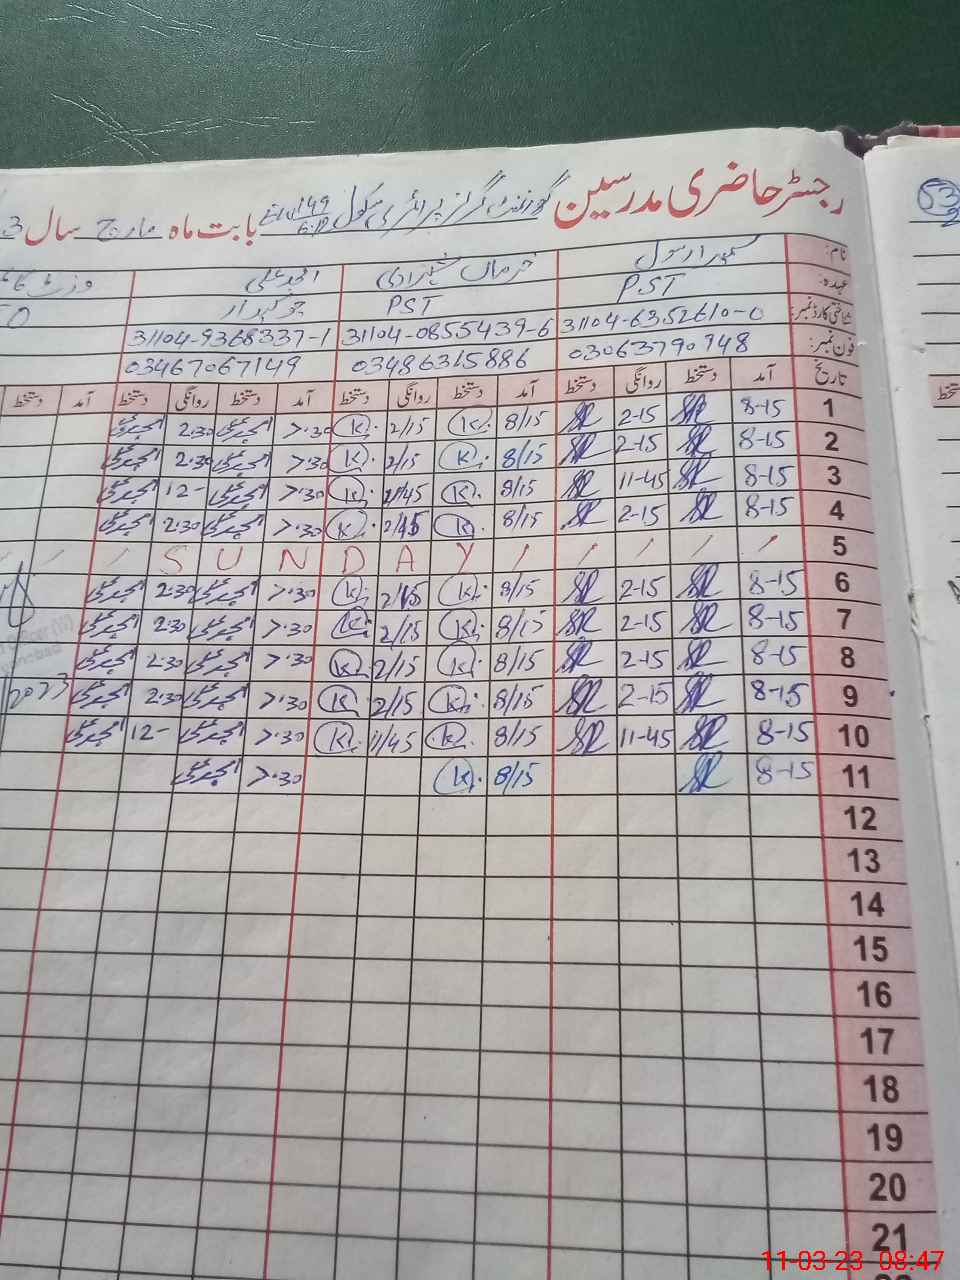 رجسٹر حاضری مدرسین گورنمنٹ گرلز پرائمری سکول 149 6-R بابت ماہ مارچ سال 3
53
نام: سمیرا رسول امجد علی
عہدہ: PST PST چوکیدار
شناختی کارڈ نمبر: 31104-6352610-0 31104-0855439-6 31104-9368337-1
فون نمبر: 03063790948 03486315886 03467067149
تاریخ آمد دستخط روانگی دستخط آمد دستخط روانگی دستخط آمد دستخط روانگی دستخط آمد دستخط
1 8-15 2-15 8/15 K 2/15 K 7.30 امجد علی 2.30 امجد علی
2 8-15 2-15 8/15 K 2/15 K 7.30 امجد علی 2.30 امجد علی
3 8-15 11-45 8/15 K 11/45 K 7.30 امجد علی 12- امجد علی
4 8-15 2-15 8/15 K 2/15 K 7.30 امجد علی 2.30 امجد علی
5 SUNDAY
6 8-15 2-15 8/15 K 2/15 K 7.30 امجد علی 2.30 امجد علی
7 8-15 2-15 8/15 K 2/15 K 7.30 امجد علی 2.30 امجد علی
8 8-15 2-15 8/15 K 2/15 K 7.30 امجد علی 2.30 امجد علی
9 8-15 2-15 8/15 K 2/15 K 7.30 امجد علی 2.30 امجد علی 2023
10 8-15 11-45 8/15 K 11/45 K 7.30 امجد علی 12- امجد علی
11 8-15 8/15 K 7.30 امجد علی
12
13
14
15
16
17
18
19
20
21
11-03-23 08:47